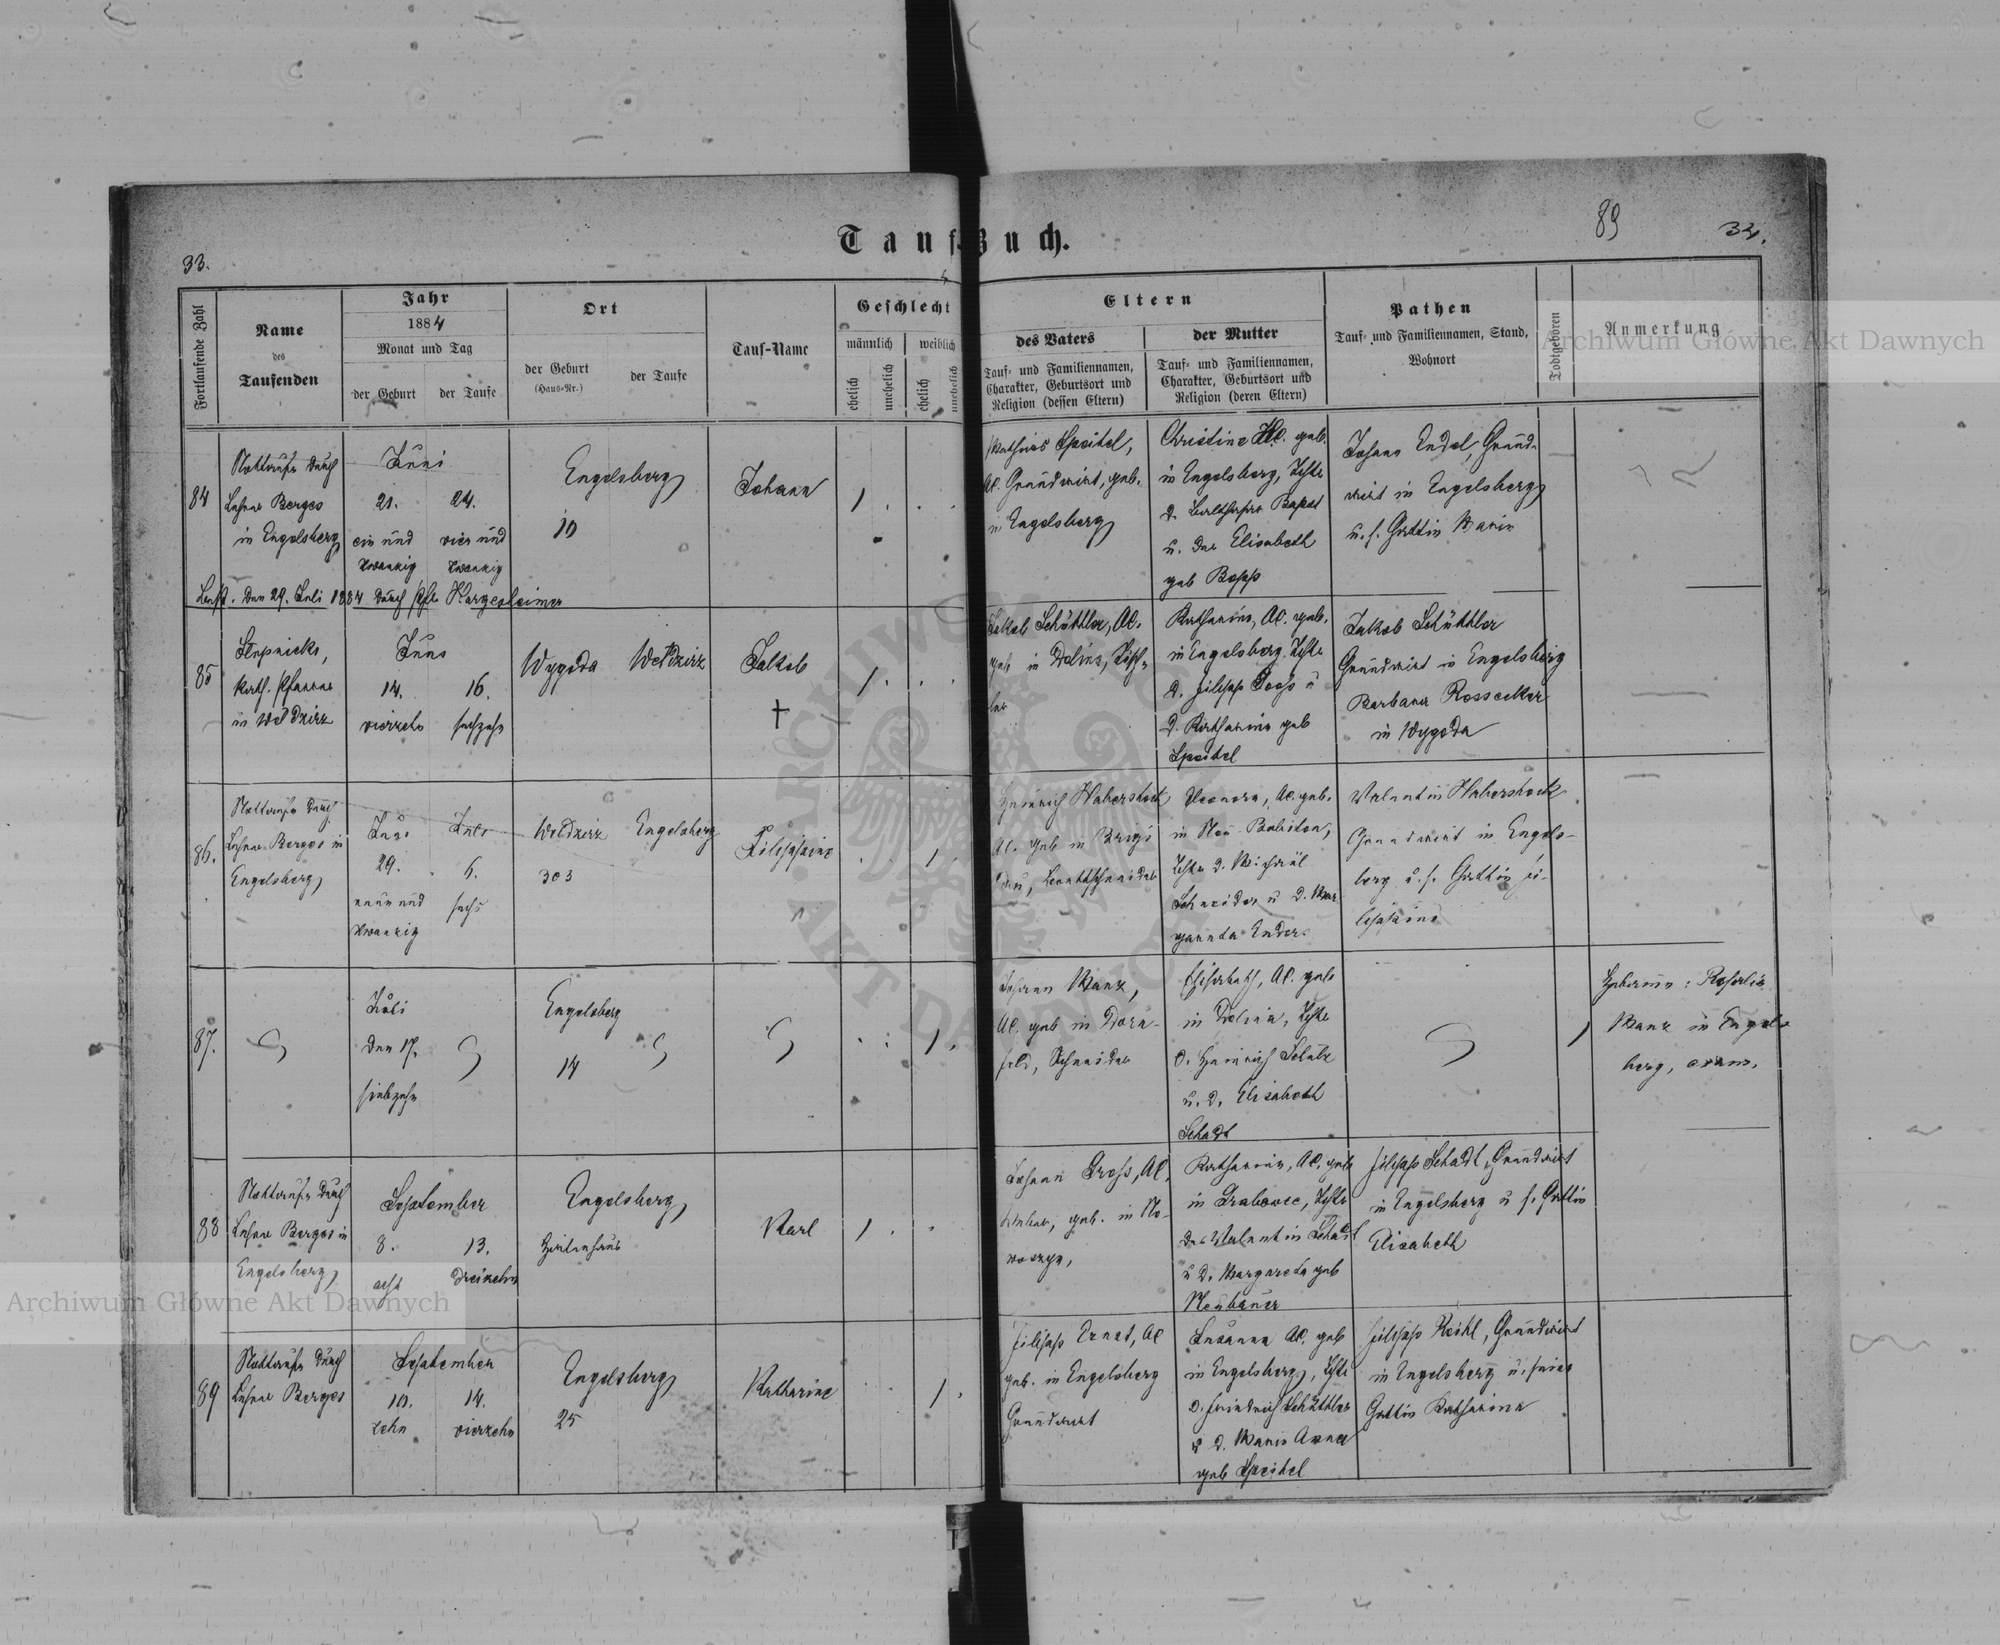 Tauf-Buch.
33.
89
34.
Fortlaufende Zahl
Name
des
Taufenden
Jahr
1884
Monat und Tag
der Geburt
der Taufe
Ort
der Geburt
(Haus-Nr.)
der Taufe
Tauf-Name
Geschlecht
männlich
weiblich
ehelich
unehelich
ehelich
unehelich
Eltern
des Vaters
Tauf- und Familiennamen,
Charakter, Geburtsort und
Religion (dessen Eltern)
der Mutter
Tauf- und Familiennamen,
Charakter, Geburtsort und
Religion (deren Eltern)
Pathen
Tauf- und Familiennamen, Stand,
Wohnort
Todtgeboren
Anmerkung
84
Nottaufe durch
Lehrer Berges
in Engelsberg
Juni
21.
ein und
zwanzig
24.
vier und
zwanzig
Engelsberg
10
Johann
1
Mathias Speitel,
AC. Grundwirt, geb.
in Engelsberg
Christine AC. geb.
in Engelsberg, Tchtr
d. Balthasar Bapst
u. der Elisabeth
geb Bopp
Johann Endel, Grund-
wirt in Engelsberg
u. s. Gattin Maria
den 29. Juli 1884 durch Pfr. Hargesheimer
85
kath. Pfarrer
in Weldzirz
Juni
14.
vierzehn
16.
sechzehn
Wygoda
Weldzirz
Jakob
†
1
Jakob Schüttler, AC.
geb in Dolina, Tisch-
ler
Katharina, AC. geb.
in Engelsberg, Tchtr
d. Filipp Joos u
d. Katharina geb
Speitel
Jakob Schüttler
Grundwirt in Engelsberg
Barbara Rossecker
in Wygoda
86.
Nottaufe durch
Lehrer Berges in
Engelsberg
Juni
29.
neun und
zwanzig
Juli
6.
sechs
Weldzirz
303
Engelsberg
Filippine
1
Heinrich Haberstock
AC. geb in Brigi
dau, Brettschneider
Eleonora, AC. geb.
in Neu-Babilon,
Tchtr d. Michael
Schneider u d. Mar
gareta Ender.
Valentin Haberstock
Grundwirt in Engels-
berg u. s. Gattin Fi-
lippine
87.
Juli
den 17.
siebzehn
Engelsberg
14
1
Johann Manz,
AC. geb in Dorn-
feld, Schneider
Elisabeth, AC. geb
in Dolina, Tchtr
d. Heinrich Schütz
u. d. Elisabeth
Schadt
1
Hebamme: Rosalia
Manz in Engels
berg, exam.
88
Nottaufe durch
Lehrer Berges in
Engelsberg
September
8.
acht
13.
dreizehn
Engelsberg
Karl
1
Johann Gross, AC,
geb. in No-
woszyn,
Katharina, AC. geb
in Grabowec, Tchtr
des Valentin Schadt
u d. Margareta geb
Neubauer
Filipp Schadt, Grundwirt
in Engelsberg u s. Gattin
Elisabeth
89
Nottaufe durch
Lehrer Berges
September
10.
zehn
14.
vierzehn
Engelsberg
25
Katharine
1
Filipp Ernst, AC
geb. in Engelsberg
Grundwirt
Susanna AC. geb
in Engelsberg, Tchtr
d. Friedrich Schüttler
u d. Maria Anna
geb Speitel
Filipp Keihl, Grundwirt
in Engelsberg u. seine
Gattin Katharina
Archiwum Główne Akt Dawnych
Archiwum Główne Akt Dawnych